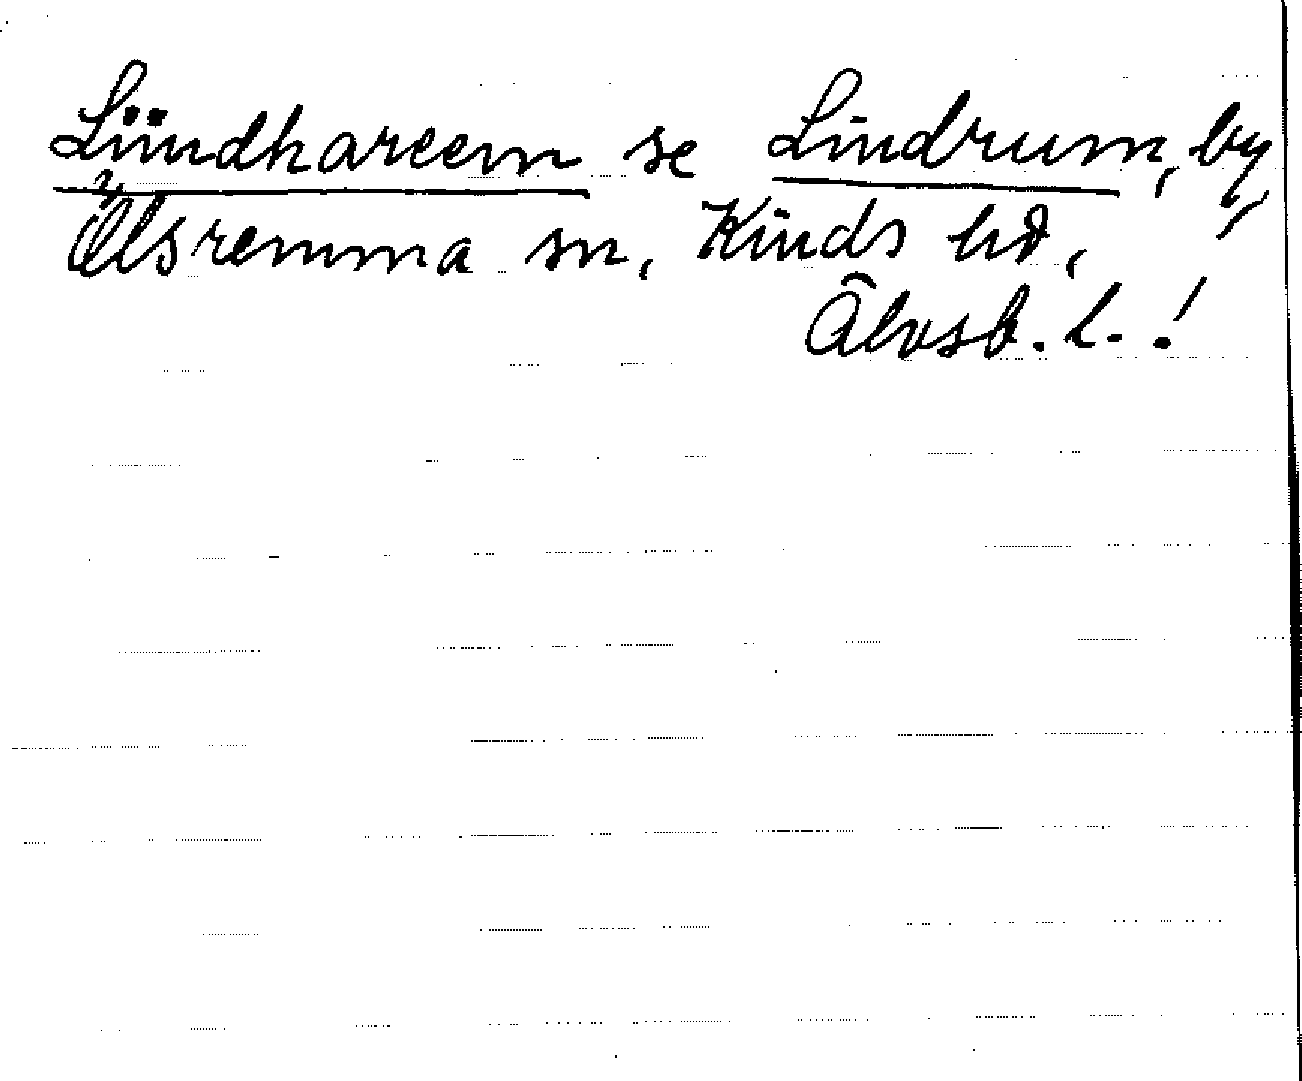 Liindhareem se Lindrum, by,
Ölsremma sn, Kinds hd,
Älvsb. l.!